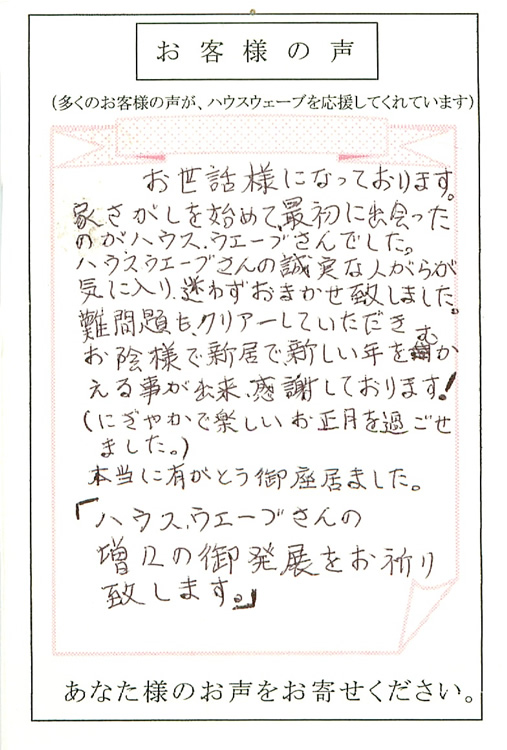 お客様の声
(多くのお客様の声が、ハウスウェーブを応援してくれています)
お世話様になっております。
家さがしを始めて、最初に出会った
のがハウス、ウエーブさんでした。
ハウスウエーブさんの誠実な人がらが
気に入り、迷わずおまかせ致しました。
難問題も、クリアーしていただき
お陰様で新居で、新しい年をむか
える事が出来、感謝しております!
(にぎやかで楽しいお正月を過ごせ
ました。)
本当に有がとう御座居ました。
「ハウス、ウエーブさんの
増々の御発展をお祈り
致します。」
あなた様のお声をお寄せください。